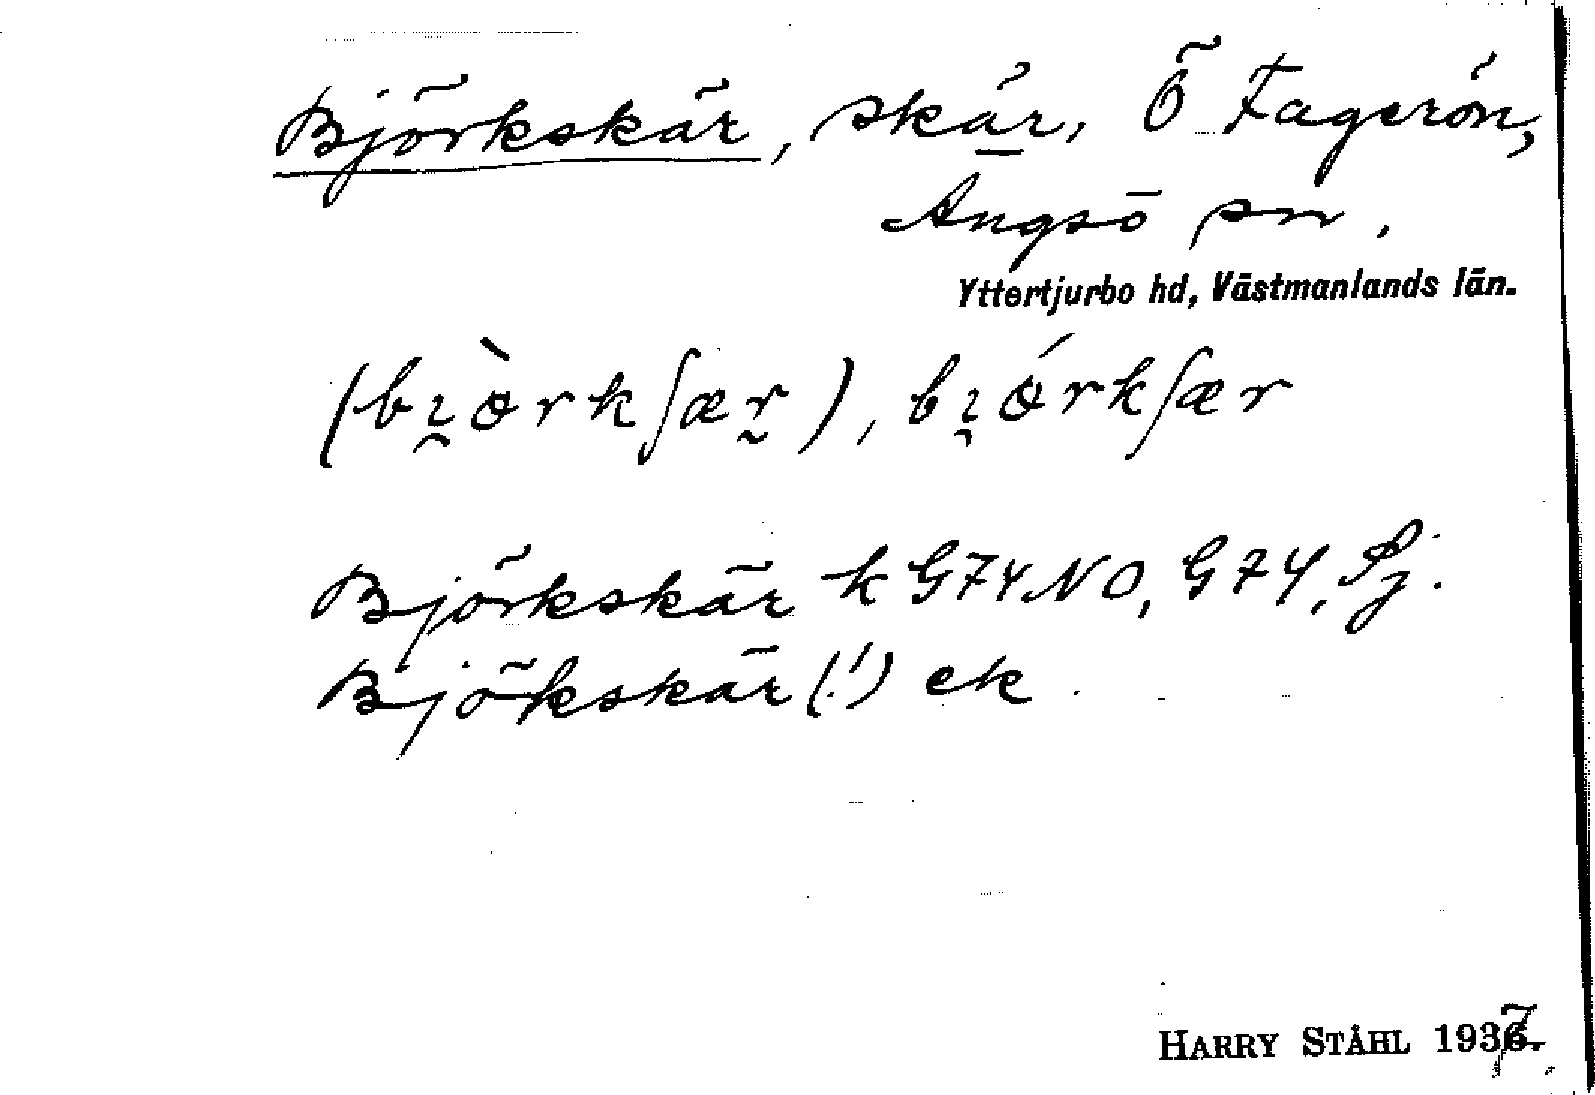 Björkskär, skär, Ö Fagerön,
Ängsö sn.
Yttertjurbo hd, Västmanlands län.
(bi̯òrkʃær̰), bi̯órkʃær
Björkskär k G74NO, G74, Sj.
Björkskär (!) ek
HARRY STÅHL 1937.